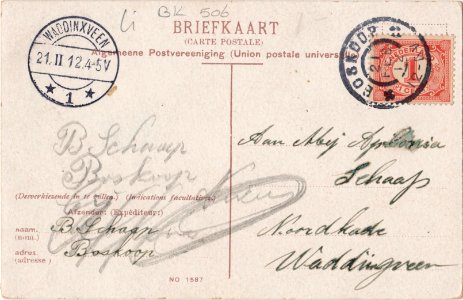 Li BK 506
BRIEFKAART
(CARTE POSTALE)
Algemeene Postvereeniging (Union postale univers
WADDINXVEEN
21.II 12.4-5V
1
BOSKOOP
1
B Schaap
Boskoop
(Desverkiezende in te vullen.) (Indications facultatives)
Afzender: (Expéditeur:)
naam. B. Schaap
(nom.)
adres. Boskoop
(adresse)
Aan Mej
Schaap
Noordkade
Waddingveen
NO 1587